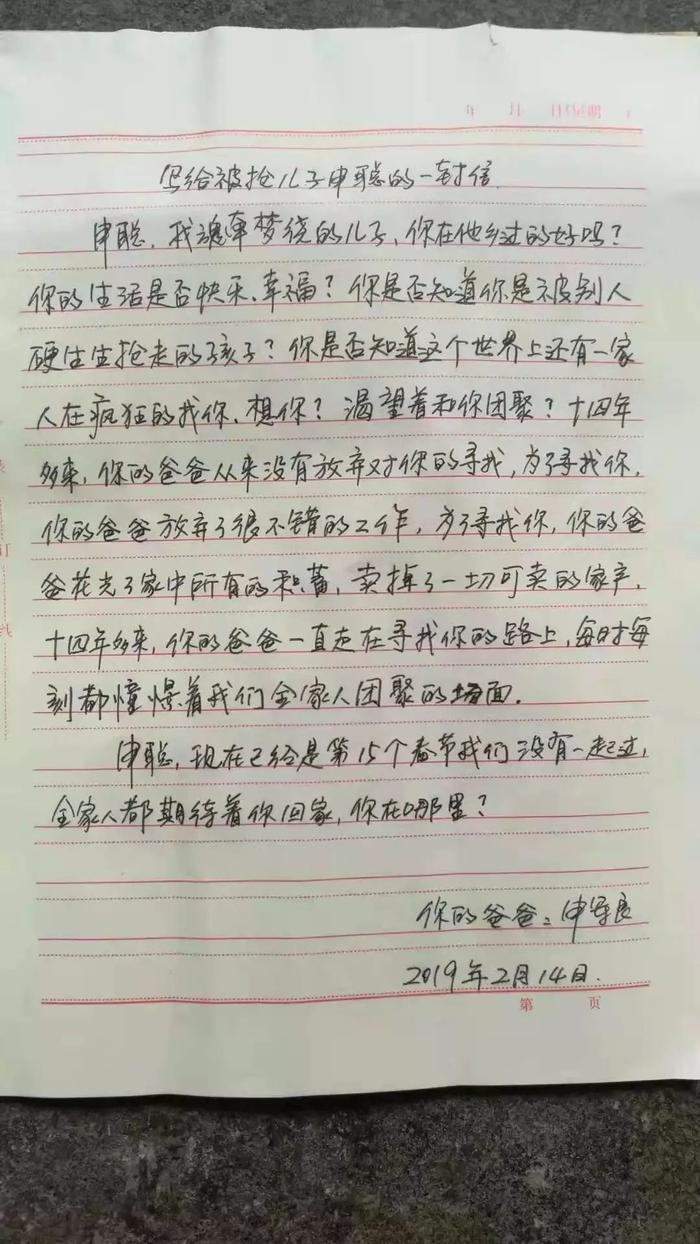 年 月 日 星期
写给被抢儿子申聪的一封信.
申聪，我魂牵梦绕的儿子，你在他乡过的好吗？
你的生活是否快乐、幸福？你是否知道你是被别人
硬生生抢走的孩子？你是否知道这个世界上还有一家
人在疯狂的找你、想你？渴望着和你团聚？十四年
多来，你的爸爸从来没有放弃对你的寻找，为了寻找你，
你的爸爸放弃了很不错的工作，为了寻找你，你的爸
爸花光了家中所有的积蓄，卖掉了一切可卖的家产，
十四年多来，你的爸爸一直走在寻找你的路上，每时每
刻都憧憬着我们全家人团聚的场面.
申聪，现在已给是第15个春节我们没有一起过，
全家人都期待着你回家，你在哪里？
你的爸爸：申军良
2019年2月14日.
第 页
订
线